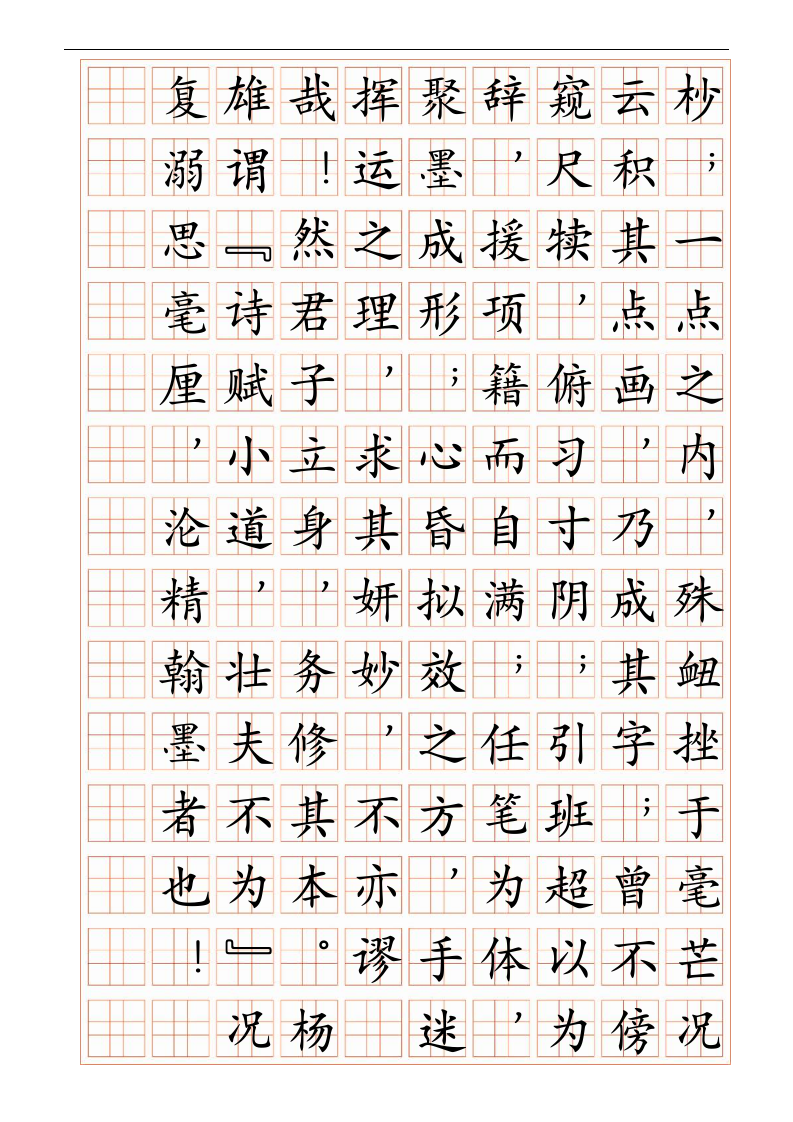 杪；一点之内，殊衄挫于毫芒况
云积其点画，乃成其字；曾不傍
窥尺犊，俯习寸阴；引班超以为
辞，援项籍而自满；任笔为体，
聚墨成形；心昏拟效之方，手迷
挥运之理，求其妍妙，不亦谬
哉！然君子立身，务修其本。杨
雄谓『诗赋小道，壮夫不为』况
复溺思毫厘，沦精翰墨者也！